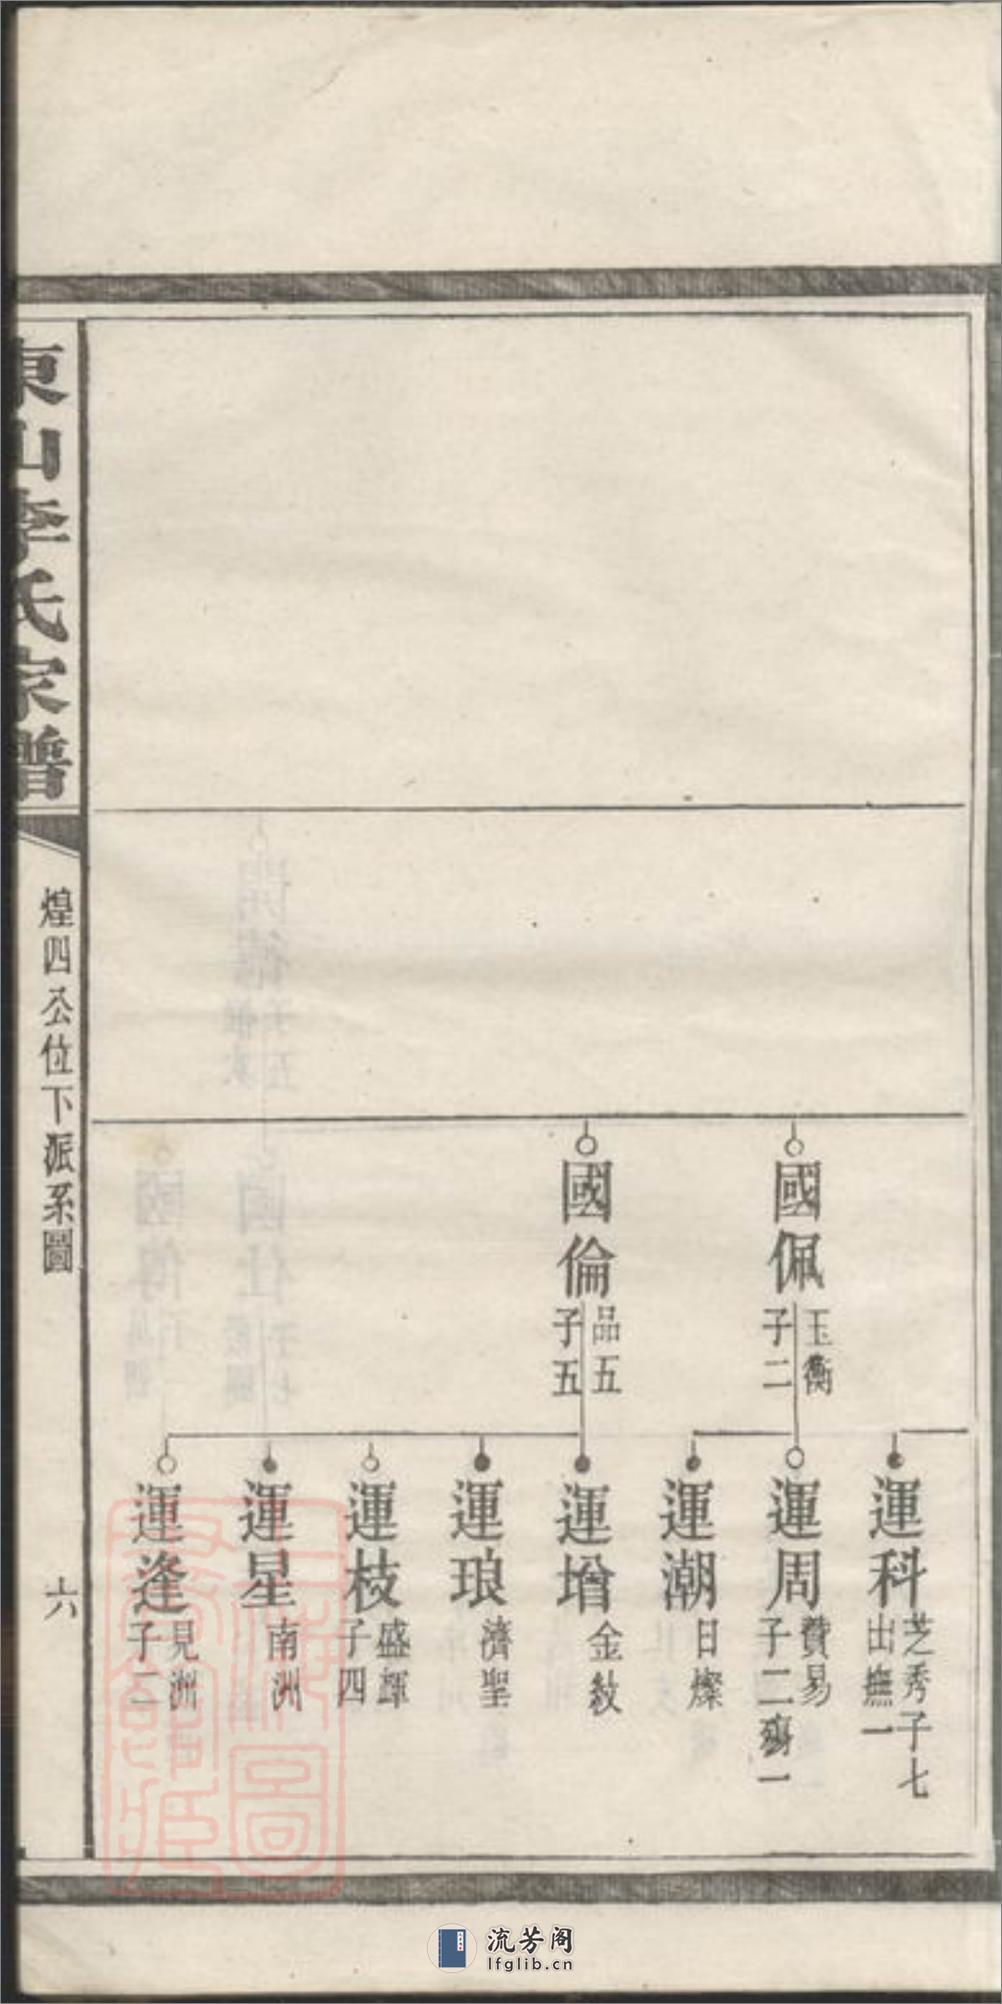 國佩
玉衡
子二
國倫
品五
子五
運科
芝秀子七
出撫一
運周
贊易
子二殤一
運潮
日燦
運增
金敍
運琅
濟聖
運枝
盛輝
子四
運星
南洲
運逢
見洲
子二
東山李氏宗譜
煌四公位下派系圖
六
流芳阁
lfglib.cn